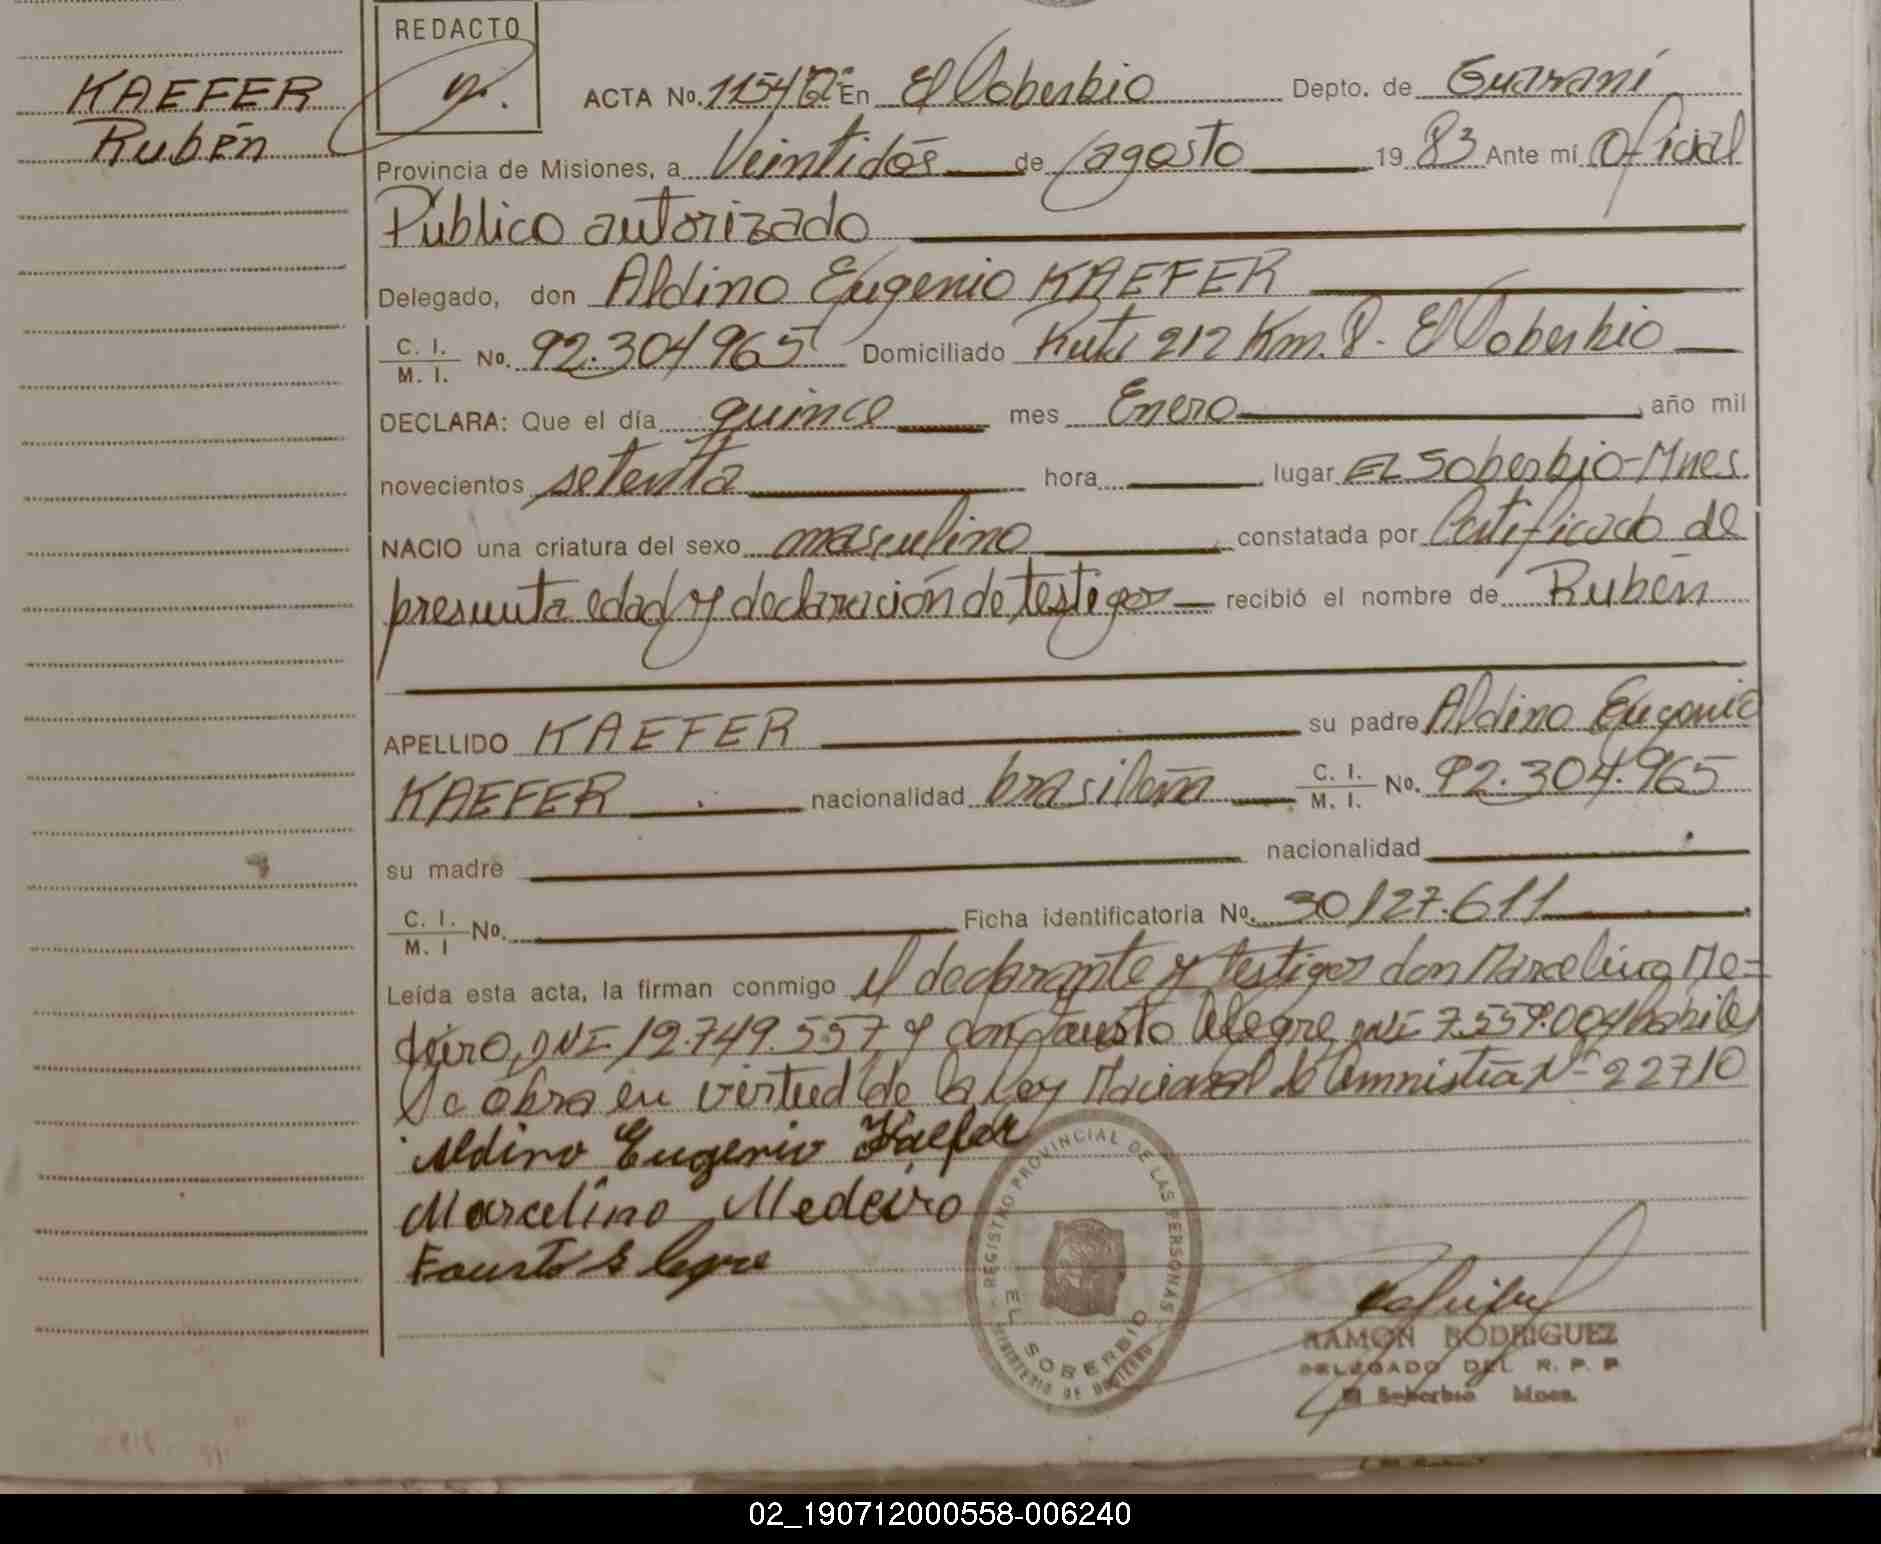 REDACTO
KAEFER
Rubén
ACTA No. 1154 En El Soberbio Depto. de Guaraní
Provincia de Misiones, a Veintidós de agosto 1983 Ante mí Oficial
Público autorizado
Delegado, don Aldino Eugenio KAEFER
C. I. / M. I. No. 92.304965 Domiciliado Ruta 212 Km. 8. El Soberbio
DECLARA: Que el día quince mes Enero, año mil
novecientos setenta hora lugar EL Soberbio-Mnes.
NACIO una criatura del sexo masculino constatada por Certificado de
presunta edad y declaración de testigos recibió el nombre de Rubén
APELLIDO KAEFER su padre Aldino Eugenio
KAEFER nacionalidad brasileña C. I. / M. I. No. 92.304.965
su madre nacionalidad
C. I. / M. I No. Ficha identificatoria No. 30127.611
Leída esta acta, la firman conmigo el declarante y testigos don Marcelino Me-
deiro, DNI 12.749.557 y don Fausto Alegre DNI 7.559.004 habiles
Se obra en virtud de la Ley Nacional de Amnistia Nº 22710
Aldino Eugenio Kaefer
Marcelino Medeiro
Fausto Alegre
REGISTRO PROVINCIAL DE LAS PERSONAS
EL SOBERBIO
MINISTERIO DE GOBIERNO
RAMON RODRIGUEZ
DELEGADO DEL R. P. P
El Soberbio Mnes.
02_190712000558-006240